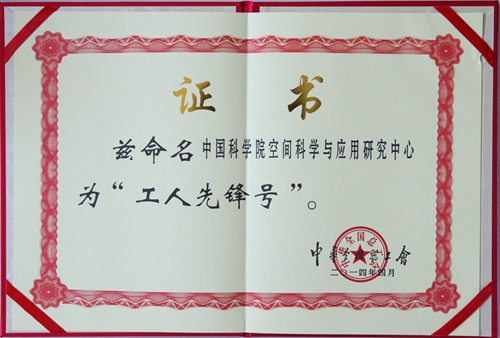 证书
兹命名中国科学院空间科学与应用研究中心
为“工人先锋号”。
中华全国总工會
二〇一四年四月